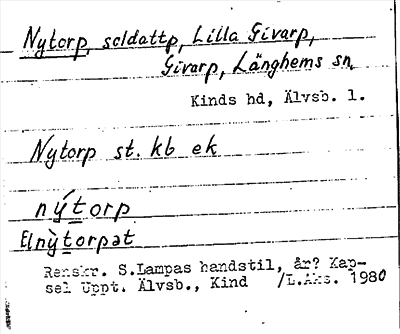 Nytorp, soldattp, Lilla Givarp,
Givarp, Länghems sn,
Kinds hd, Älvsb. l.
Nytorp st. kb ek
nýtorp
Elnỳtorpət
Renskr. S.Lampas handstil, år? Kap-
sel Uppt. Älvsb., Kind /L.Ahs. 1980